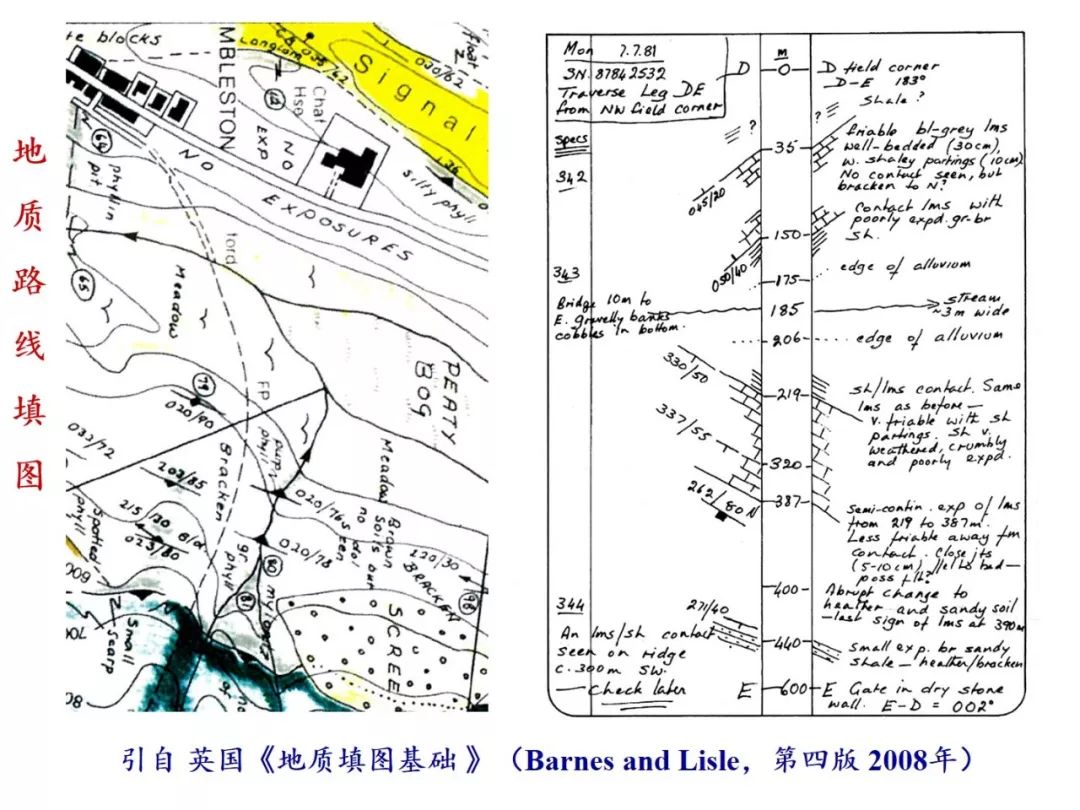 地
质
路
线
填
图
te blocks
MBLESTON
Longlom
035/62
Signal
030/62
float
Chat
Hse
NO
EXP
NO
NO EXPOSURES
silty phyll
36
64
phyll in
pit
ford
65
Meadow
PEATY
BOG
79
020/90
FP
purp
phyll
Meadow
033/72
203/85
Bracken
020/76
215/30
023/80
Spotted
phyll
020/78
80
81
gr.
phyll
Brown
soils but
no
120/30
BRACKEN
SCREE
Small
scarp
600
700
Mon 7.7.81
SN 87842532
Traverse Leg DE
from NW field corner
specs
342
343
Bridge 10m to
E. gravelly banks
cobbles in bottom.
344
An lms/sh contact
seen on ridge
c. 300m SW.
— check later
045/20
050/40
330/50
337/55
262/80 N
271/40
m
D 0
35
150
175
185
206
219
320
387
400
440
E 600
D field corner
D-E 183°
Shale?
?
?
friable bl-grey lms
well-bedded (30cm),
w. shaley partings (10cm)
No contact seen, but
bracken to N?
Contact lms with
poorly expd. gr-br
sh.
edge of alluvium
stream
~3m wide
edge of alluvium
sh/lms contact. Same
lms as before —
v. friable with sh
partings. Sh v.
weathered, crumbly
and poorly expd.
Semi-contin. exp of lms
from 219 to 387m.
Less friable away fm
contact. Close jts
(5-10cm) //el to bed—
poss flt?
Abrupt change to
heather and sandy soil
— last sign of lms at 390m
Small exp. br sandy
shale — heather/bracken
E Gate in dry stone
wall. E-D = 002°
引自 英国《地质填图基础 》（Barnes and Lisle，第四版 2008年）